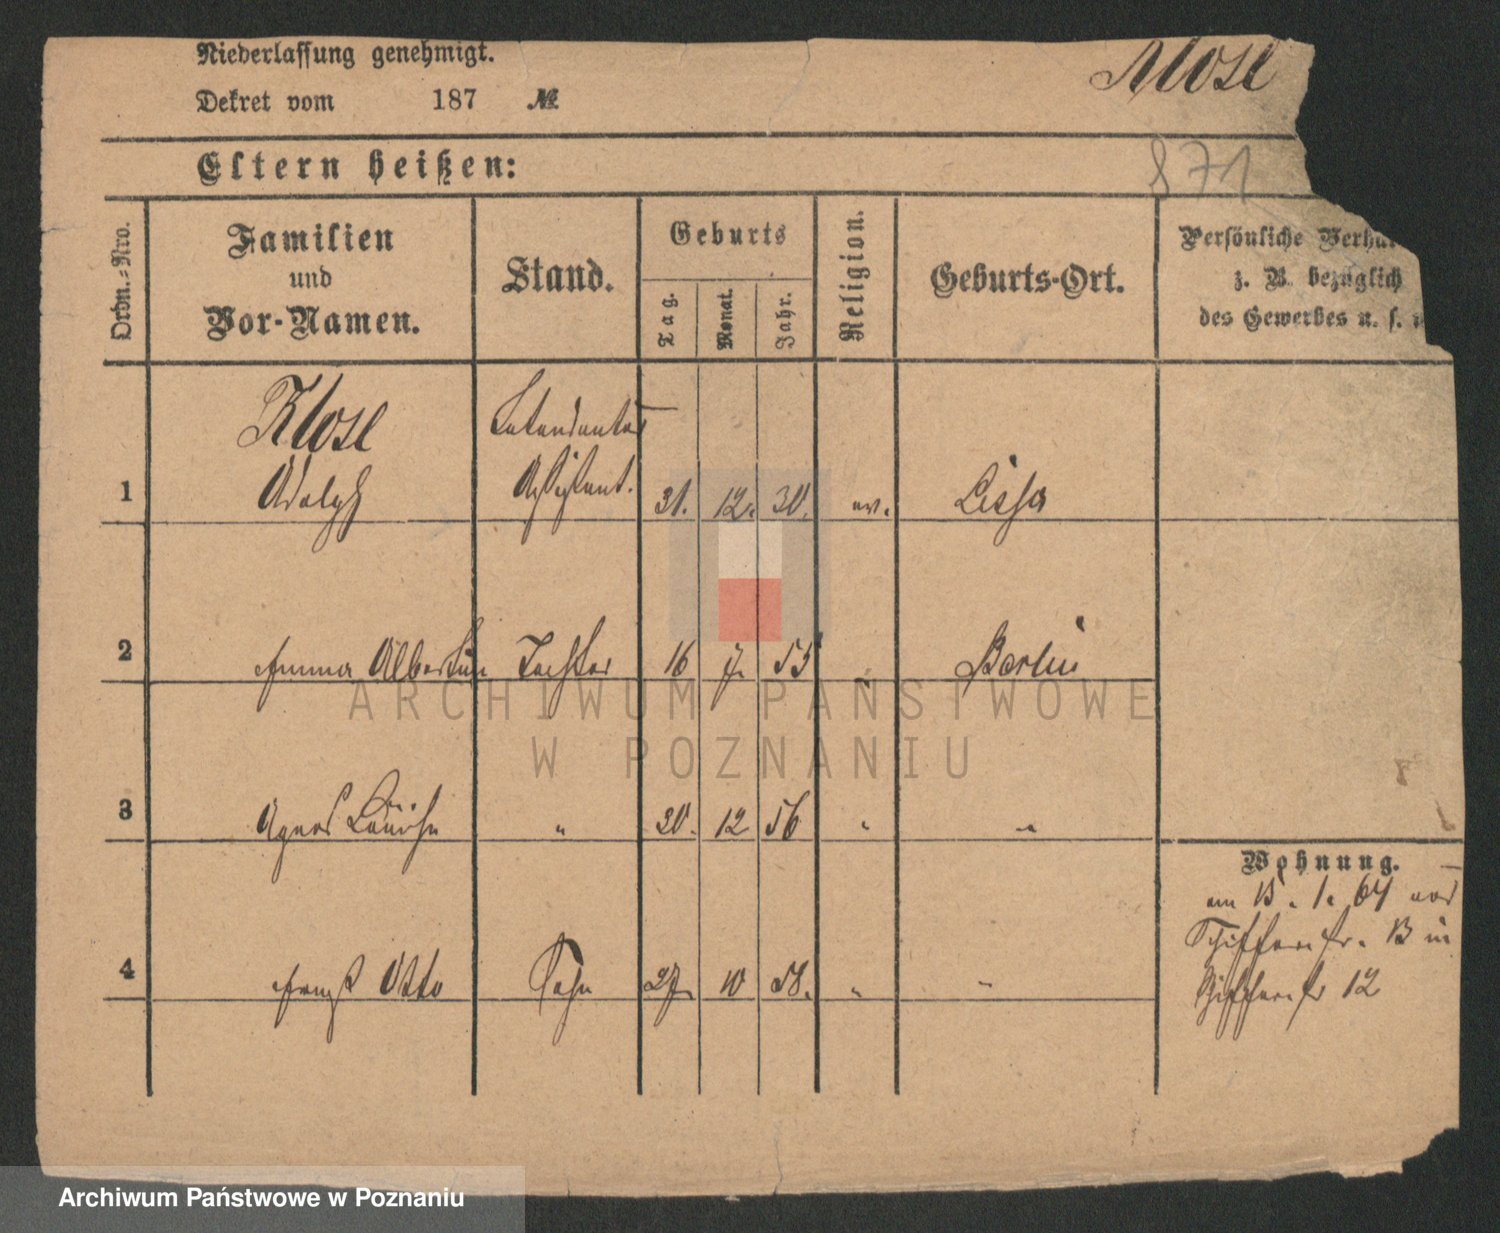 Niederlassung genehmigt.
Klose
Dekret vom 187 №
871
Eltern heißen:
Ordn.-Nro.
Familien
und
Vor-Namen.
Stand.
Geburts
Tag.
Monat.
Jahr.
Religion.
Geburts-Ort.
Persönliche
z. B. bezüglich
des Gewerbes u. s.
Klose
Intendantur
1 Adolph Assistent. 31. 12. 30. ev. Lissa
2 Emma Albertine Tochter 16 7. 55 " Berlin
3 Agnes Louise " 30. 12 56 " "
4 Ernst Otto Sohn 27. 10 58. " "
Wohnung.
am 15. 1. 64 von
Schifferstr. 13 in
Schifferstr 12
ARCHIWUM PAŃSTWOWE
W POZNANIU
Archiwum Państwowe w Poznaniu